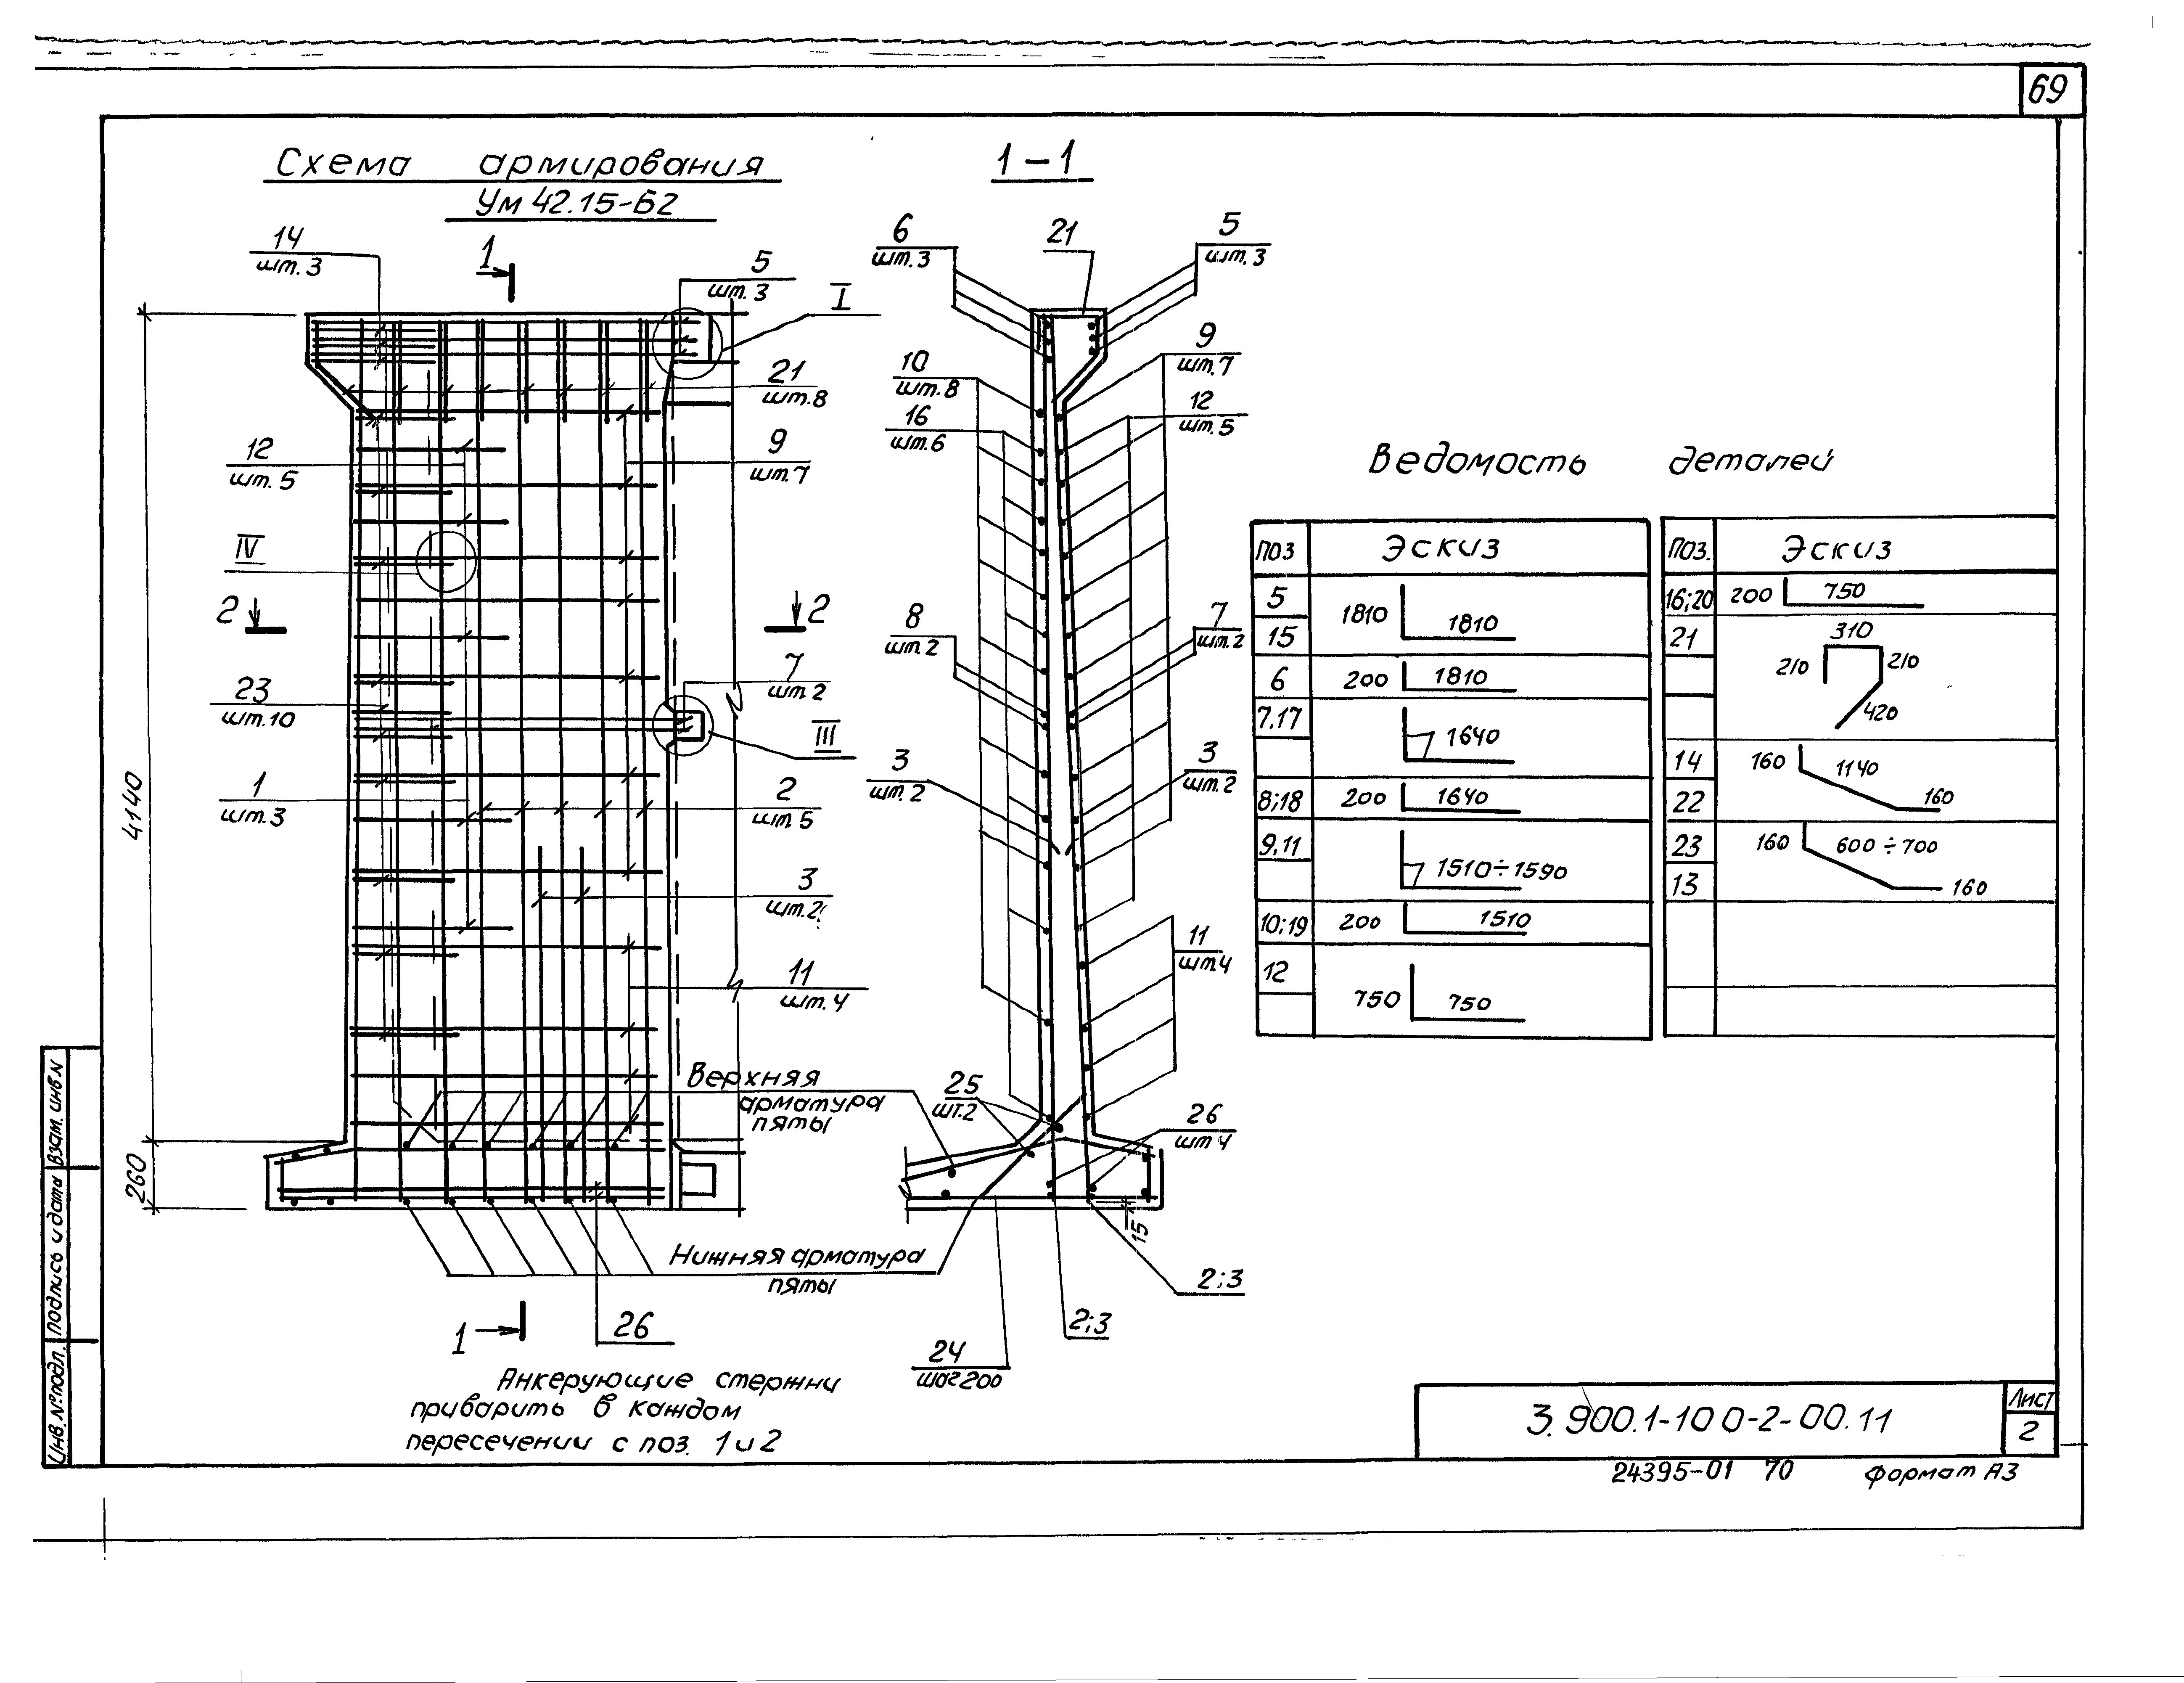 69
Схема армирования
Ум 42.15-Б2
1-1
14
шт. 3
1
5
шт. 3
I
21
шт.8
12
шт. 5
9
шт.7
IV
2
2
23
шт.10
7
шт.2
III
1
шт.3
2
шт.5
3
шт.2
11
шт.4
4140
260
Верхняя
арматура
пяты
Нижняя арматура
пяты
1
26
Анкерующие стержни
приварить в каждом
пересечении с поз. 1 и 2
6
шт.3
21
5
шт.3
10
шт.8
9
шт.7
16
шт.6
12
шт.5
8
шт.2
7
шт.2
3
шт.2
3
шт.2
11
шт.4
25
шт.2
26
шт 4
15
2;3
2;3
24
шаг 200
Ведомость деталей
поз Эскиз
5
15
1810 1810
6 200 1810
7,17 1640
8;18 200 1640
9,11 1510÷1590
10;19 200 1510
12 750 750
поз. Эскиз
16;20 200 750
21 310
210 210
420
14
22
160 1140 160
23
13
160 600÷700 160
Взам. инв N
Подпись и дата
Инв. № подл.
3.900.1-10 0-2-00.11
Лист
2
24395-01 70 формат А3